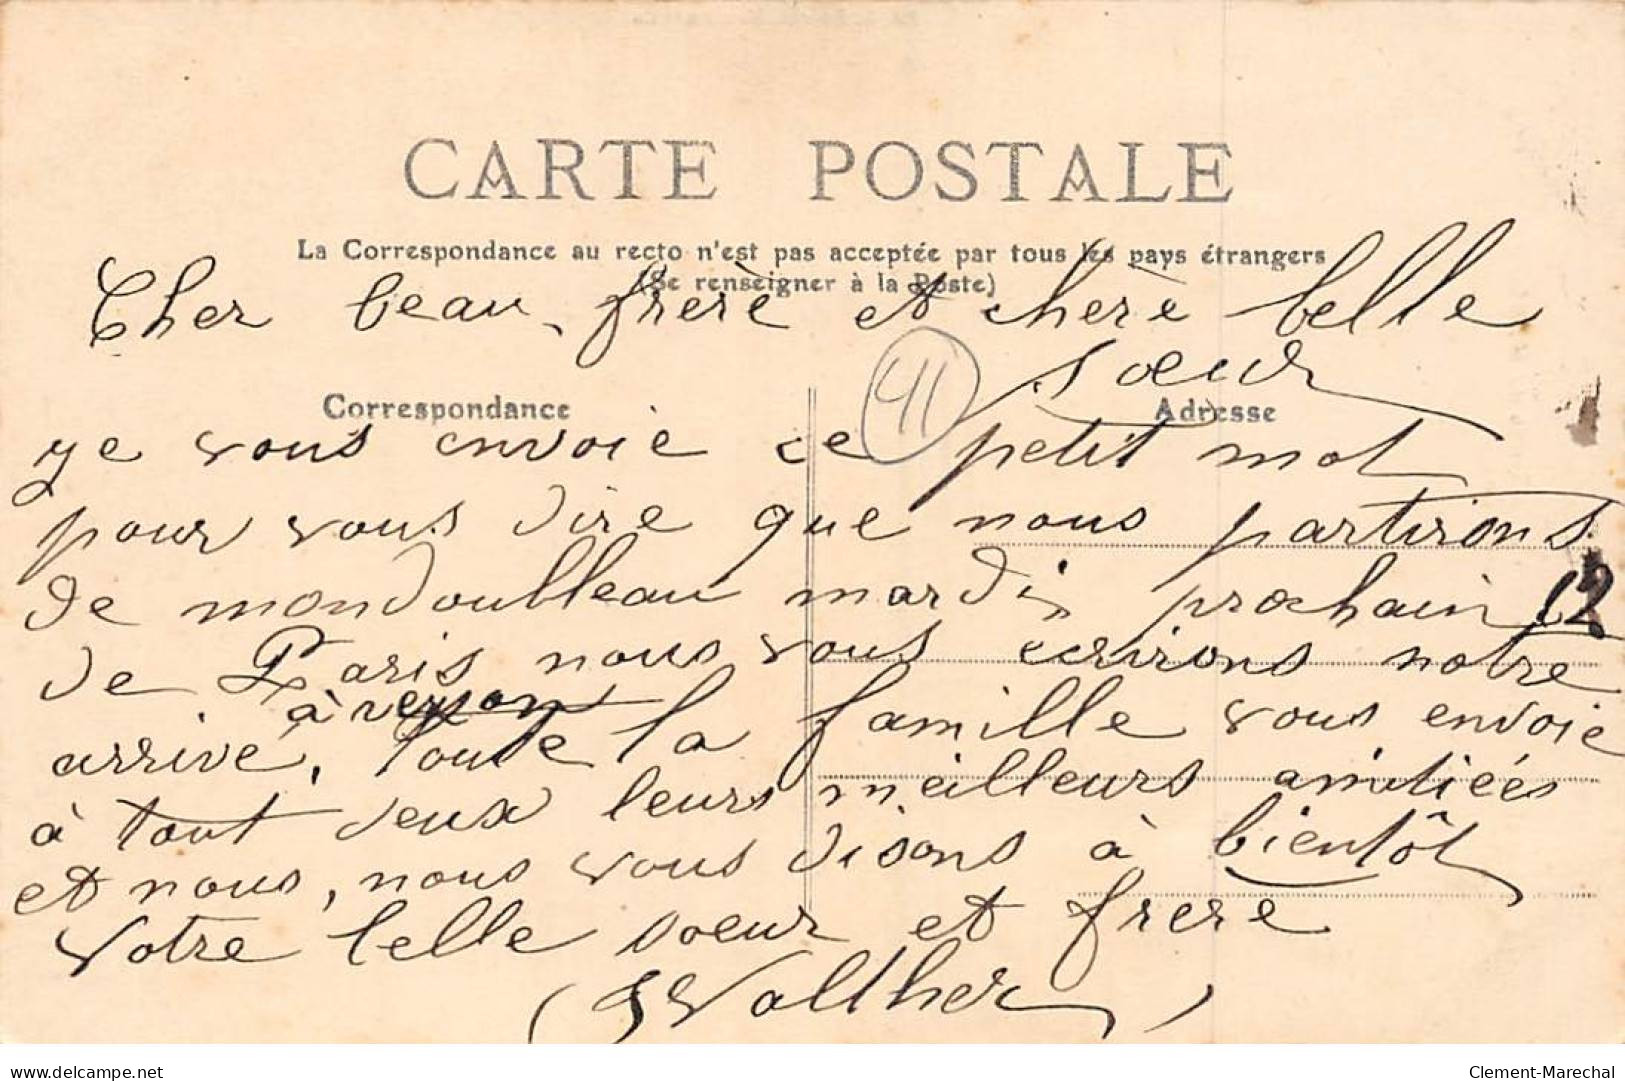 CARTE POSTALE
La Correspondance au recto n'est pas acceptée par tous les pays étrangers
(Se renseigner à la Poste)
Cher beau-frerè et cherè belle
sœur
Correspondance
41
Adresse
je vous envoie ce petit mot
pour vous dire que nous partirons
de mondoubleau mardi prochain 12
de Paris nous vous écrirons notre
arrivé, à
toute la famille vous envoie
à tout deux leurs meilleurs amitiées
et nous, nous vous disons à bientôt
votre belle sœur et frere
Walther
delcampe.net
Clement-Marechal